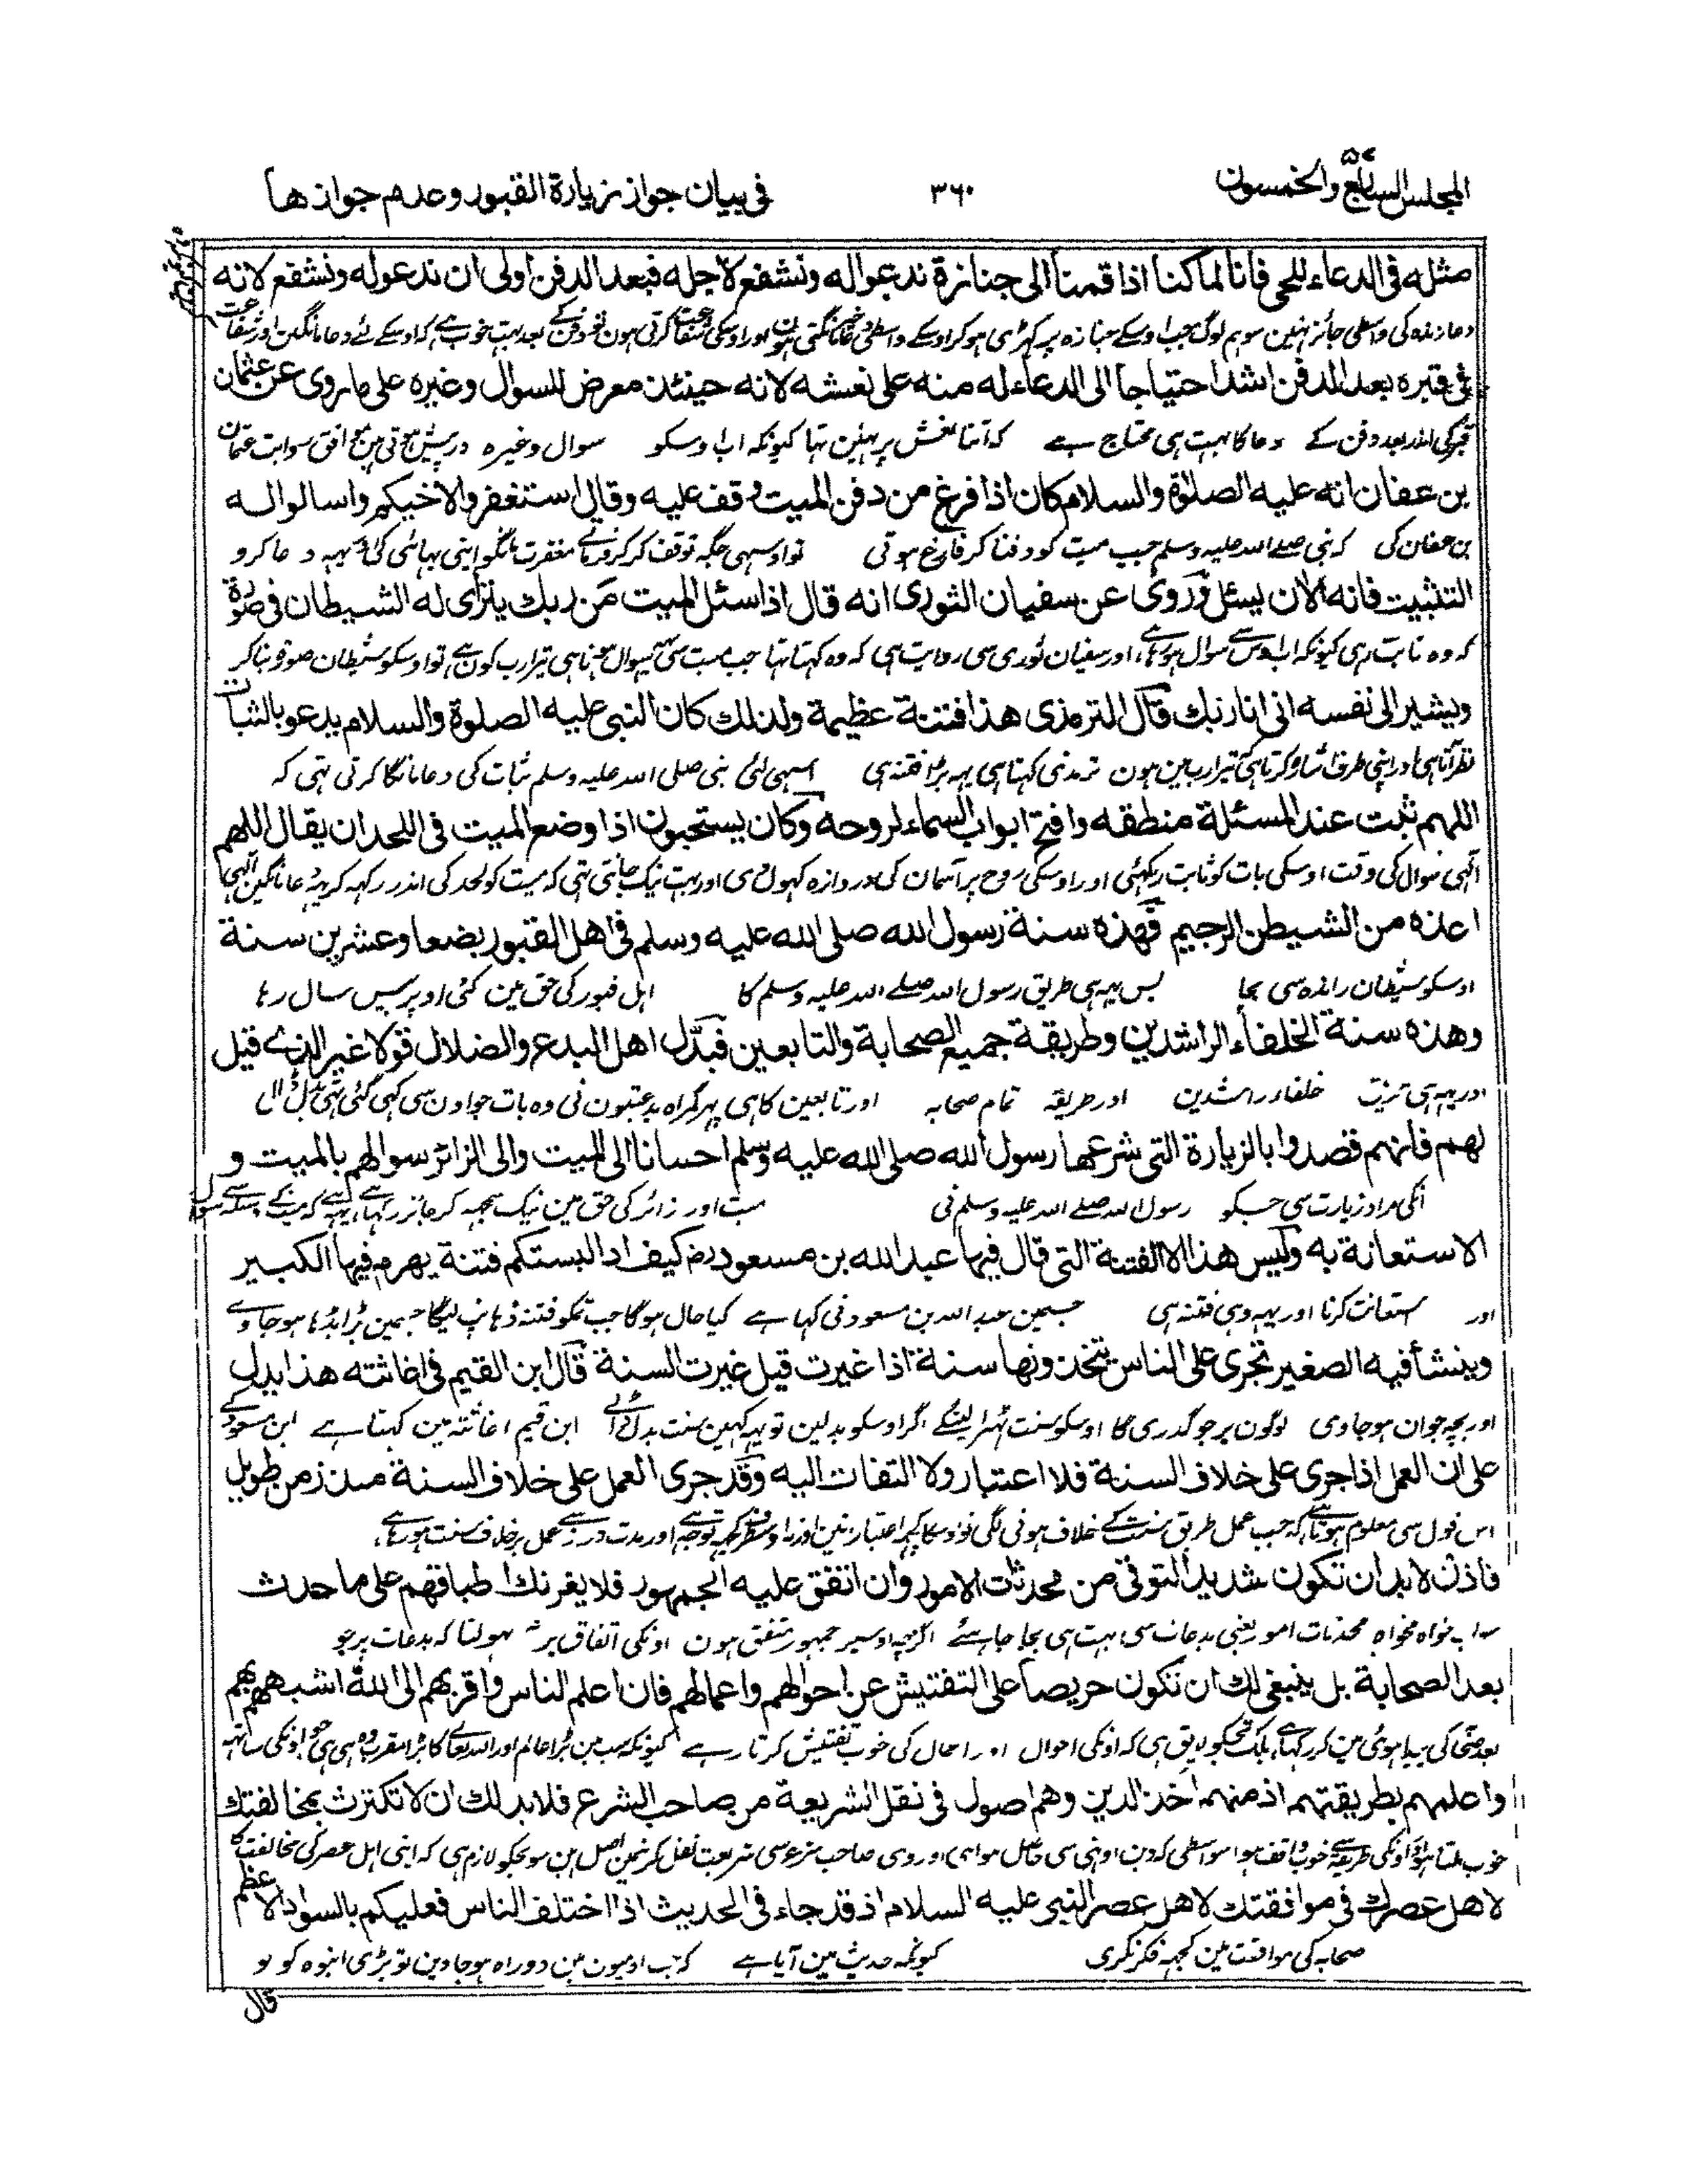 المجلس السابع والخمسون ٥٧
٣٦٠
فى بيان جواز زيارة القبور وعدم جوازها
مثله فى الدعاء للحى فانا لما كنا اذا قمنا الى جنازة ندعو له ونشفع لاجله فبعد الدفن اولى ان ندعو له ونشفع لانه
فى قبره بعد الدفن اشد احتياجا الى الدعاء له منه على نعشه لانه حينئذ معرض للسوال وغيره على ما روى عن عثمان
قبر کی اندر بعد دفن کے دعا کا بہت ہی محتاج ہے کہ اتنا نعش پر نہین تہا کیونکہ اب اوسکو سوال وغیرہ درپیش
بن عفان انه عليه الصلوة والسلام كان اذا فرغ من دفن الميت وقف عليه وقال استغفروا لاخيكم واسالوا له
بن عفان کی کہ نبی صلے اللہ علیہ وسلم جب میت کو دفنا کر فارغ ہوتی تو اوسہی جگہ توقف کر کر فرماتے مغفرت مانگو اپنی بہائی کی یہہ دعا کرو
التثبيت فانه الان يسئل وروى عن سفيان الثورى انه قال اذا سئل الميت من ربك يتراى له الشيطان فى صورة
کہ وہ ثابت رہی کیونکہ اب اوس سے سوال ہوتا ہے، اور سفیان ثوری سی روایت ہی کہ وہ کہتا تہا جب میت سی یہہ سوال ہوتا ہی تیرا رب کون ہے، تو اوسکو شیطان صورت بنا کر
ويشير الى نفسه انى انا ربك قال الترمذى هذا فتنة عظيمة ولذلك كان النبى عليه الصلوة والسلام يدعو بالثبات
نظر آتا ہی اور اپنی طرف اشارہ کرتا ہی تیرا رب مین ہون ترمذی کہتا ہی یہہ بڑا فتنہ ہی اسہی لئی نبی صلی اللہ علیہ وسلم ثبات کی دعا مانگا کرتی تہی کہ
اللهم ثبت عند المسئلة منطقه وافتح ابواب السماء لروحه وكان يستحبون اذا وضع الميت فى اللحد ان يقال اللهم
الہی سوال کی وقت اوسکی بات کو ثابت رکہئی اور اوسکی روح پر آسمان کی دروازہ کہولدی اور بہت نیک جانتی تہی کہ میت کو لحد کی اندر رکہہ کر یہہ دعا مانگین الہی
اعذه من الشيطن الرجيم فهذه سنة رسول الله صلى الله عليه وسلم فى اهل القبور بضعا وعشرين سنة
اوسکو شیطان راندہ سی بچا پس یہہ ہی طریق رسول اللہ صلے اللہ علیہ وسلم کا اہل قبور کی حق مین کئی اوپر بیس سال رہا
وهذه سنة الخلفاء الراشدين وطريقة جميع الصحابة والتابعين فبدل اهل البدع والضلال قولا غير الذى قيل
خلفاء راشدین اور طریقہ تمام صحابہ اور تابعین کا ہی پہر گمراہ بدعتیون نی وہ بات جو اون سی کہی گئی تہی بدل ڈالی
لهم فانهم قصدوا بالزيارة التى شرعها رسول الله صلى الله عليه وسلم احسانا الى الميت والى الزائر سوالهم بالميت و
انکی مراد زیارت سی جسکو رسول اللہ صلے اللہ علیہ وسلم نی میت اور زائر کی حق مین نیک سمجہہ کر جائز رکہا ہے
الاستعانة به وليس هذا الا الفتنة التى قال فيها عبد الله بن مسعود رض كيف اذا لبستكم فتنة يهرم فيها الكبير
اور استعانت کرنا اور یہہ وہی فتنہ ہی جسمین عبد اللہ بن مسعود نی کہا ہے کیا حال ہوگا جب تمکو فتنہ ڈہانپ لیگا جسمین بڑا بڈہا ہو جاوے
وينشأ فيه الصغير تجرى على الناس يتخذونها سنة اذا غيرت قيل غيرت السنة قال ابن القيم فى اغاثته هذا يدل
اور بچہ جوان ہو جاوی لوگون پر جو گذری گا اوسکو سنت ٹہرا لینگے اگر اوسکو بدلین تو یہہ کہین سنت بدل ڈالی ابن قیم اغاثتہ مین کہتا ہے ابن مسعود کے
على ان العمل اذا جرى على خلاف السنة فلا اعتبار ولا التفات اليه وقد جرى العمل على خلاف السنة منذ زمن طويل
اس قول سی معلوم ہوتا ہے کہ جب عمل طریق سنت کے خلاف ہونی لگی تو اوسکا کچہہ اعتبار نہین اور مدت دراز سے عمل بر خلاف سنت ہو رہا ہے،
فاذن لابد ان تكون شديد التوقى من محدثات الامور وان اتفق عليه الجمهور فلا يغرنك اطباقهم على ما حدث
اب خواہ مخواہ محدثات امور یعنی بدعات سی بہت ہی بچا چاہئے اگرچہ اوسپر جمہور متفق ہون اونکی اتفاق پر نہ بہولنا کہ بدعات پر جو
بعد الصحابة بل ينبغى لك ان تكون حريصا على التفتيش عن احوالهم واعمالهم فان اعلم الناس واقربهم الى الله اشبههم بهم
بلکہ تجکو لایق ہی کہ اونکی احوال اور اعمال کی خوب تفتیش کرتا رہے کیونکہ سب مین بڑا عالم اور اللہ تعالے کا بڑا مقرب وہ ہی ہی جو اونکی ساتہہ
واعلمهم بطريقتهم اذ منهم اخذ الدين وهم اصول فى نقل الشريعة من صاحب الشرع فلابد لك ان لا تكترث بمخالفتك
سو تجکو لازم ہی کہ اپنی اہل عصر کی مخالفت کا
لاهل عصرك فى موافقتك لاهل عصر النبى عليه السلام اذ قد جاء فى الحديث اذا اختلف الناس فعليكم بالسواد الاعظم
صحابہ کی موافقت مین کچہہ فکر نکری کیونکہ حدیث مین آیا ہے کہ جب ادمیون مین دو راہ ہو جاوین تو بڑی انبوہ کو لو
قال